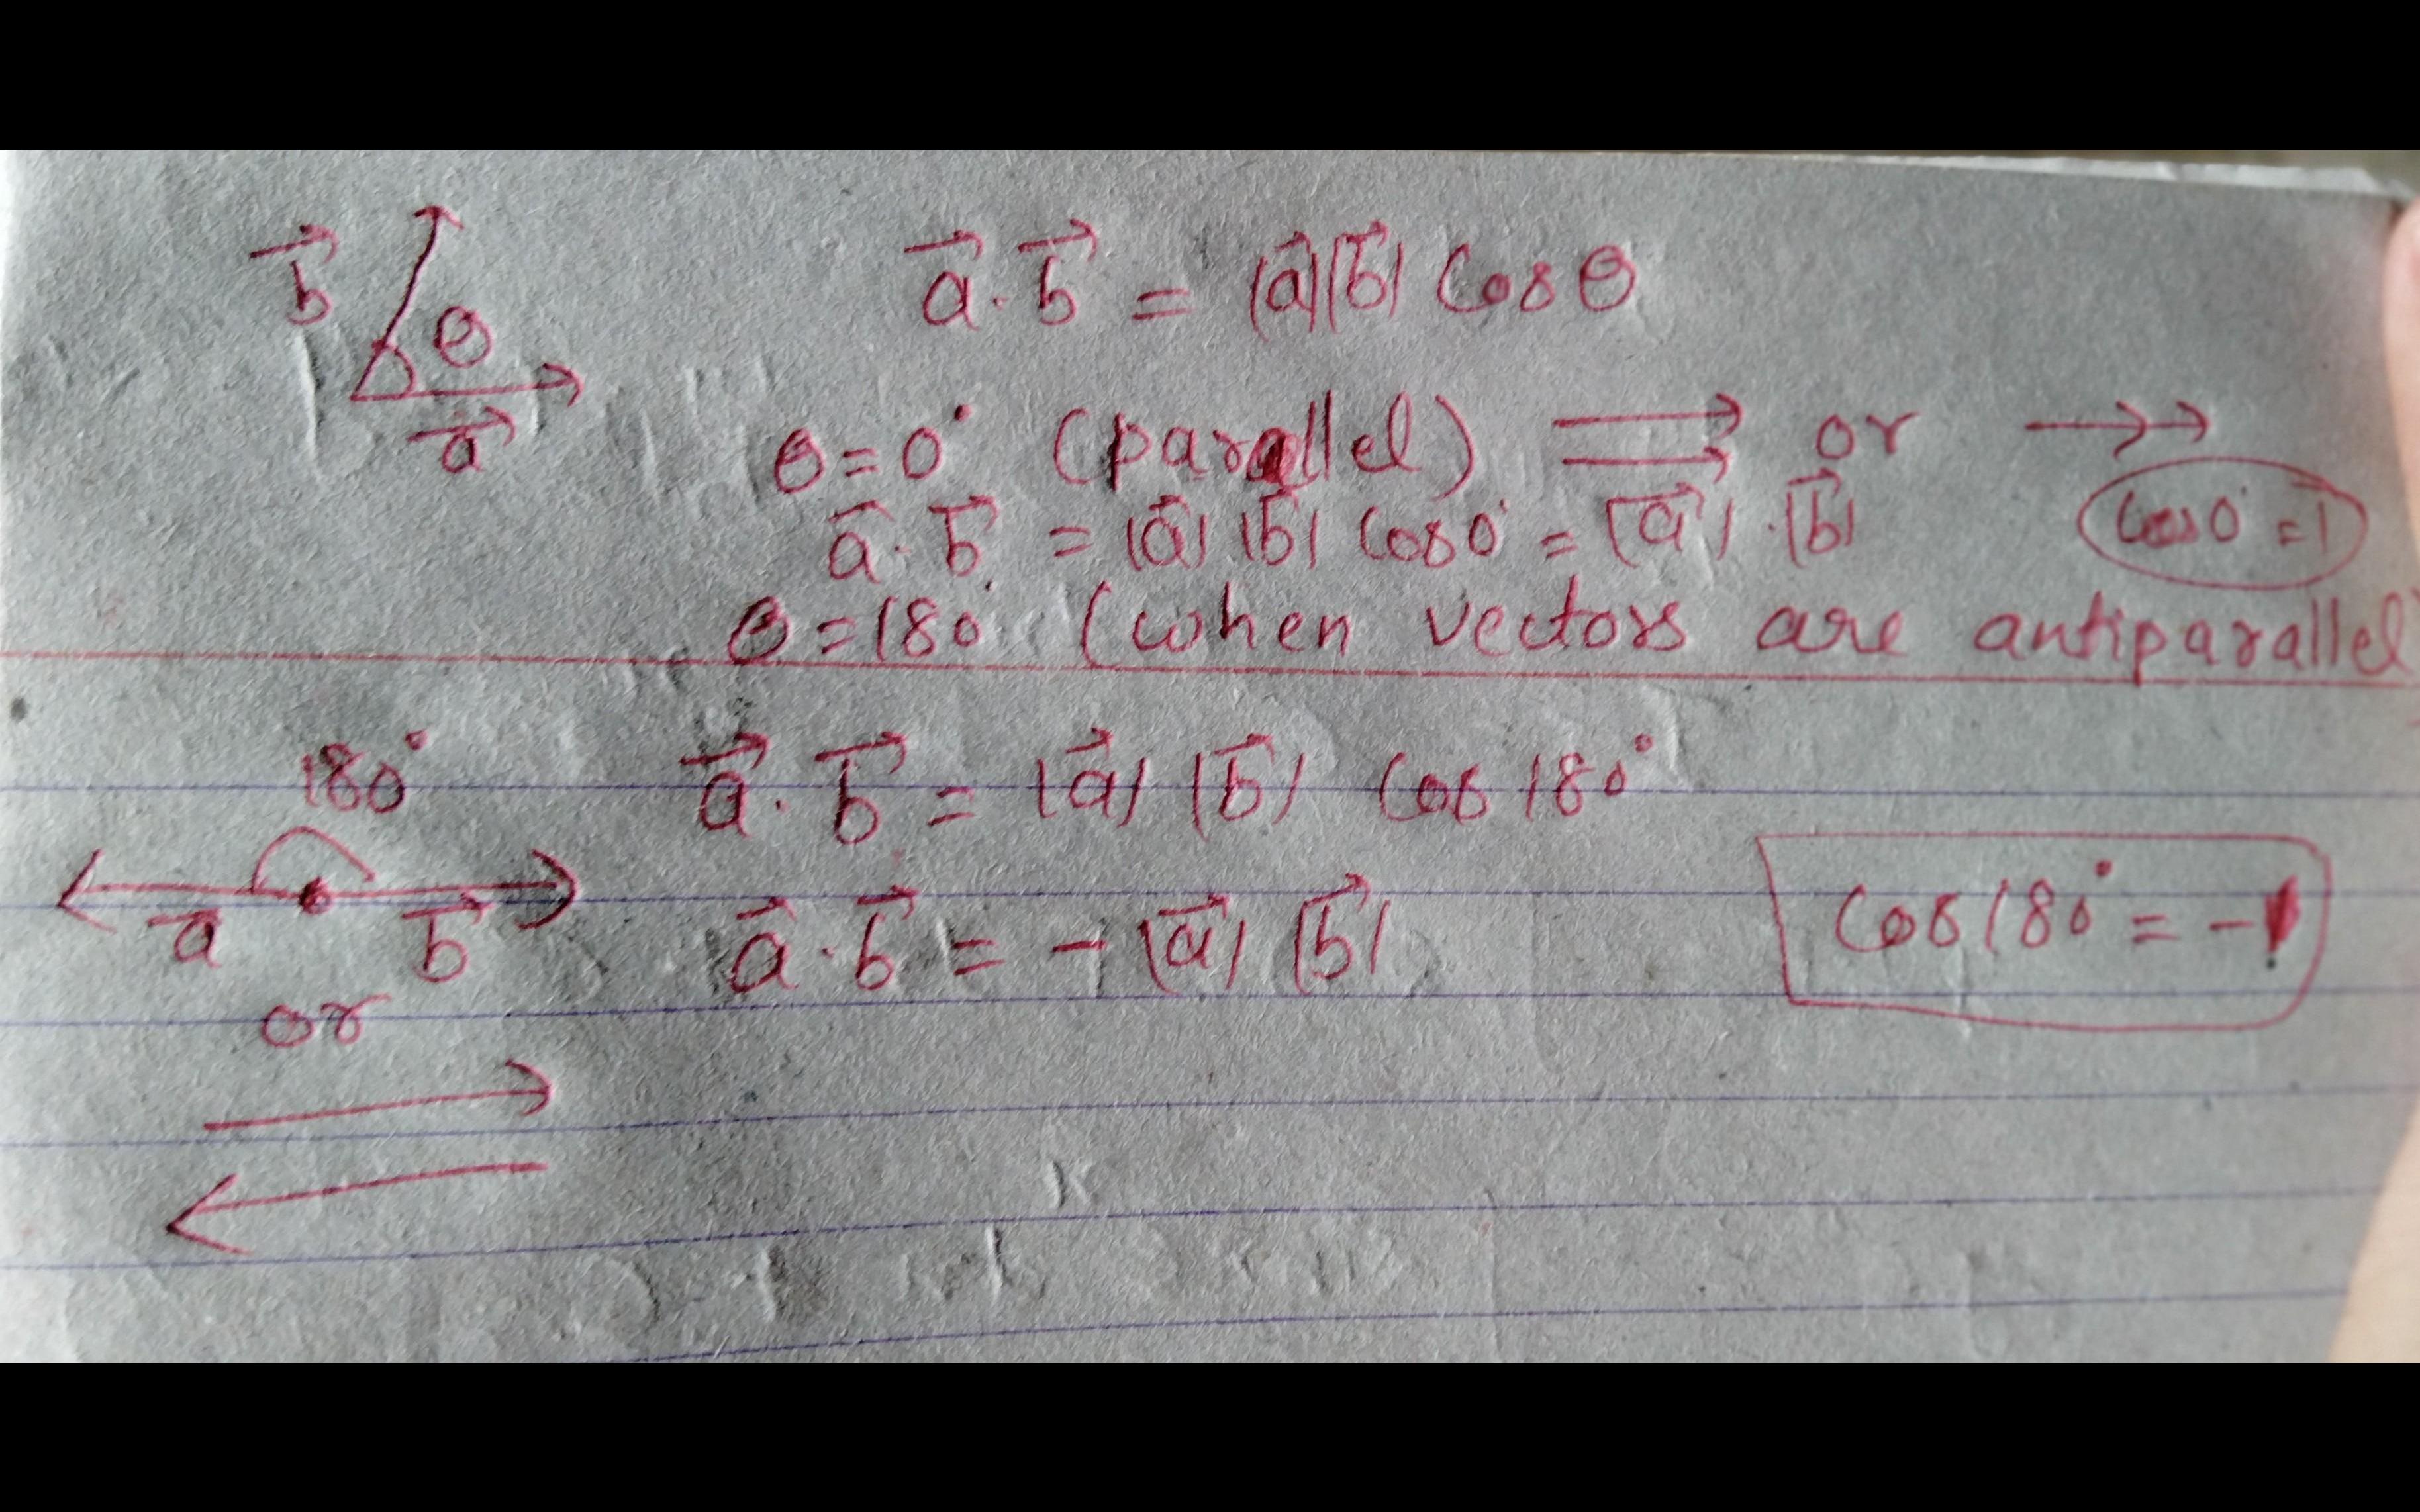 b⃗ θ a⃗
a⃗ . b⃗ = |a⃗||b⃗| Cos θ
θ = 0° (parallel) or
a⃗ . b⃗ = |a⃗| |b⃗| Cos 0° = |a⃗| . |b⃗|
Cos 0° = 1
θ = 180° (when vectors are antiparallel)
180°
a⃗ b⃗
or
a⃗ . b⃗ = |a⃗| |b⃗| Cos 180°
a⃗ . b⃗ = - |a⃗| |b⃗|
Cos 180° = -1